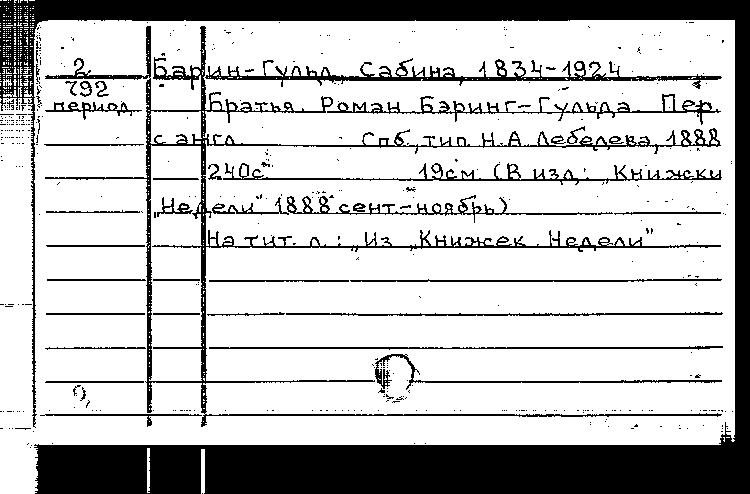 2 Барин-Гульд, Сабина, 1834-1924
792
период. Братья. Роман Баринг-Гульда. Пер.
с англ. Спб, тип. Н.А. Лебедева, 1888
240с 19см. (В изд.: „Книжки
„Недели" 1888 сент.-ноябрь)
На тит. л.: „Из „Книжек Недели"